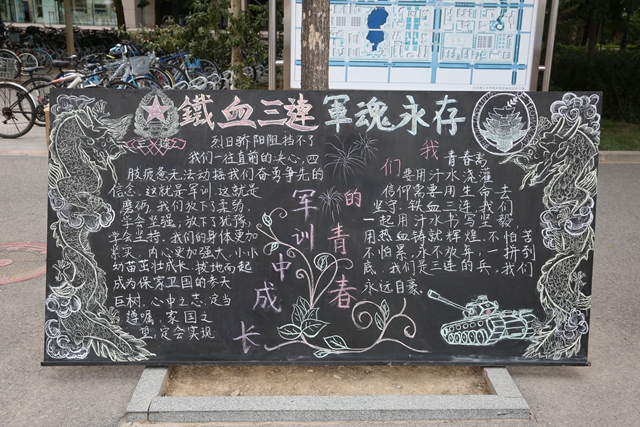 鐵血三連 軍魂永存
烈日骄阳阻挡不了
我们一往直前的决心,四
肢疲惫无法动摇我们奋勇争先的
信念。这就是军训,这就是
磨砺。我们放下了柔弱,
学会坚强,放下了犹豫,
学会坚持。我们的身体更加
紧实,内心更加强大,小小
幼苗茁壮成长,拔地而起
成为保家卫国的参天
巨树,心中之志,定当
家国之
定会实现
军训中成长
我们的青春
青春需
要用汗水浇灌
信仰需要用生命去
坚守,铁血三连,我们
一起用汗水书写坚毅,
用热血铸就辉煌。不怕苦
不怕累,永不放弃,一拼到
底。我们是三连的兵,我们
永远自豪。